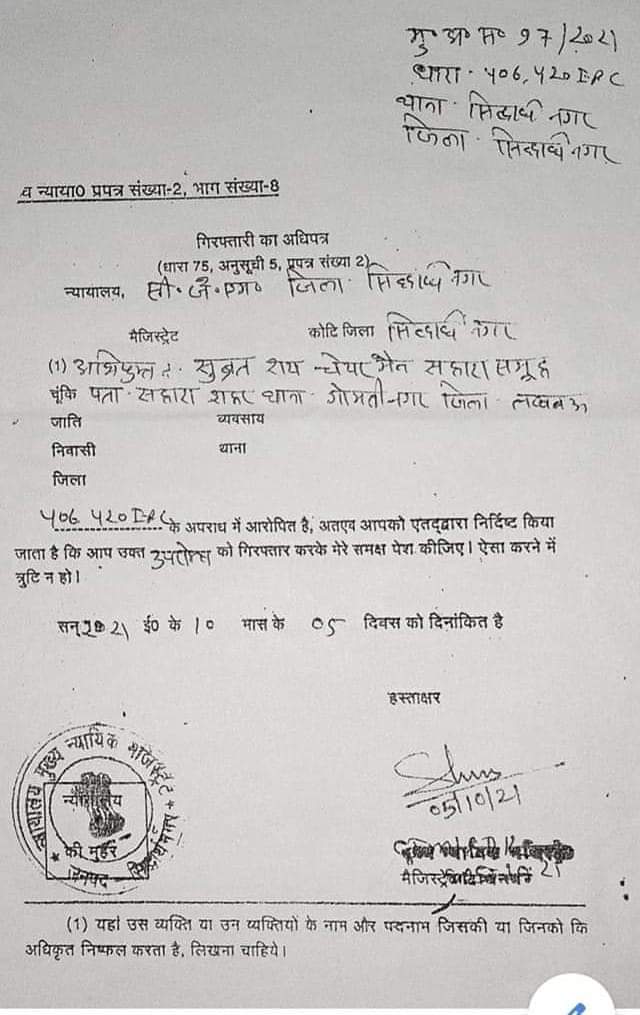 मु० अ० स० 97/2021
धारा - 406, 420 I.P.C
थाना - सिद्धार्थ नगर
जिला - सिद्धार्थ नगर
व न्याया0 प्रपत्र संख्या-2, भाग संख्या-8
गिरफ्तारी का अधिपत्र
(धारा 75, अनुसूची 5, प्रपत्र संख्या 2)
न्यायालय, सी० जे० एम० जिला - सिद्धार्थ नगर
मैजिस्ट्रेट कोटि जिला सिद्धार्थ नगर
(1) अभियुक्त - सुब्रत राय चेयरमैन सहारा समूह
चूंकि पता - सहारा शहर थाना - गोमतीनगर जिला - लखनऊ
जाति व्यवसाय
निवासी थाना
जिला
406 420 I.P.C के अपराध में आरोपित है, अतएव आपको एतद्द्वारा निर्दिष्ट किया
जाता है कि आप उक्त उपरोक्त को गिरफ्तार करके मेरे समक्ष पेश कीजिए। ऐसा करने में
त्रुटि न हो।
सन् 2021 ई0 के 10 मास के 05 दिवस को दिनांकित है
हस्ताक्षर
05/10/21
न्यायालय मुख्य न्यायिक मजिस्ट्रेट
न्यायालय
की मुहर
जनपद
मैजिस्ट्रेट
(1) यहां उस व्यक्ति या उन व्यक्तियों के नाम और पदनाम जिसकी या जिनको कि
अधिकृत निष्फल करता है, लिखना चाहिये।